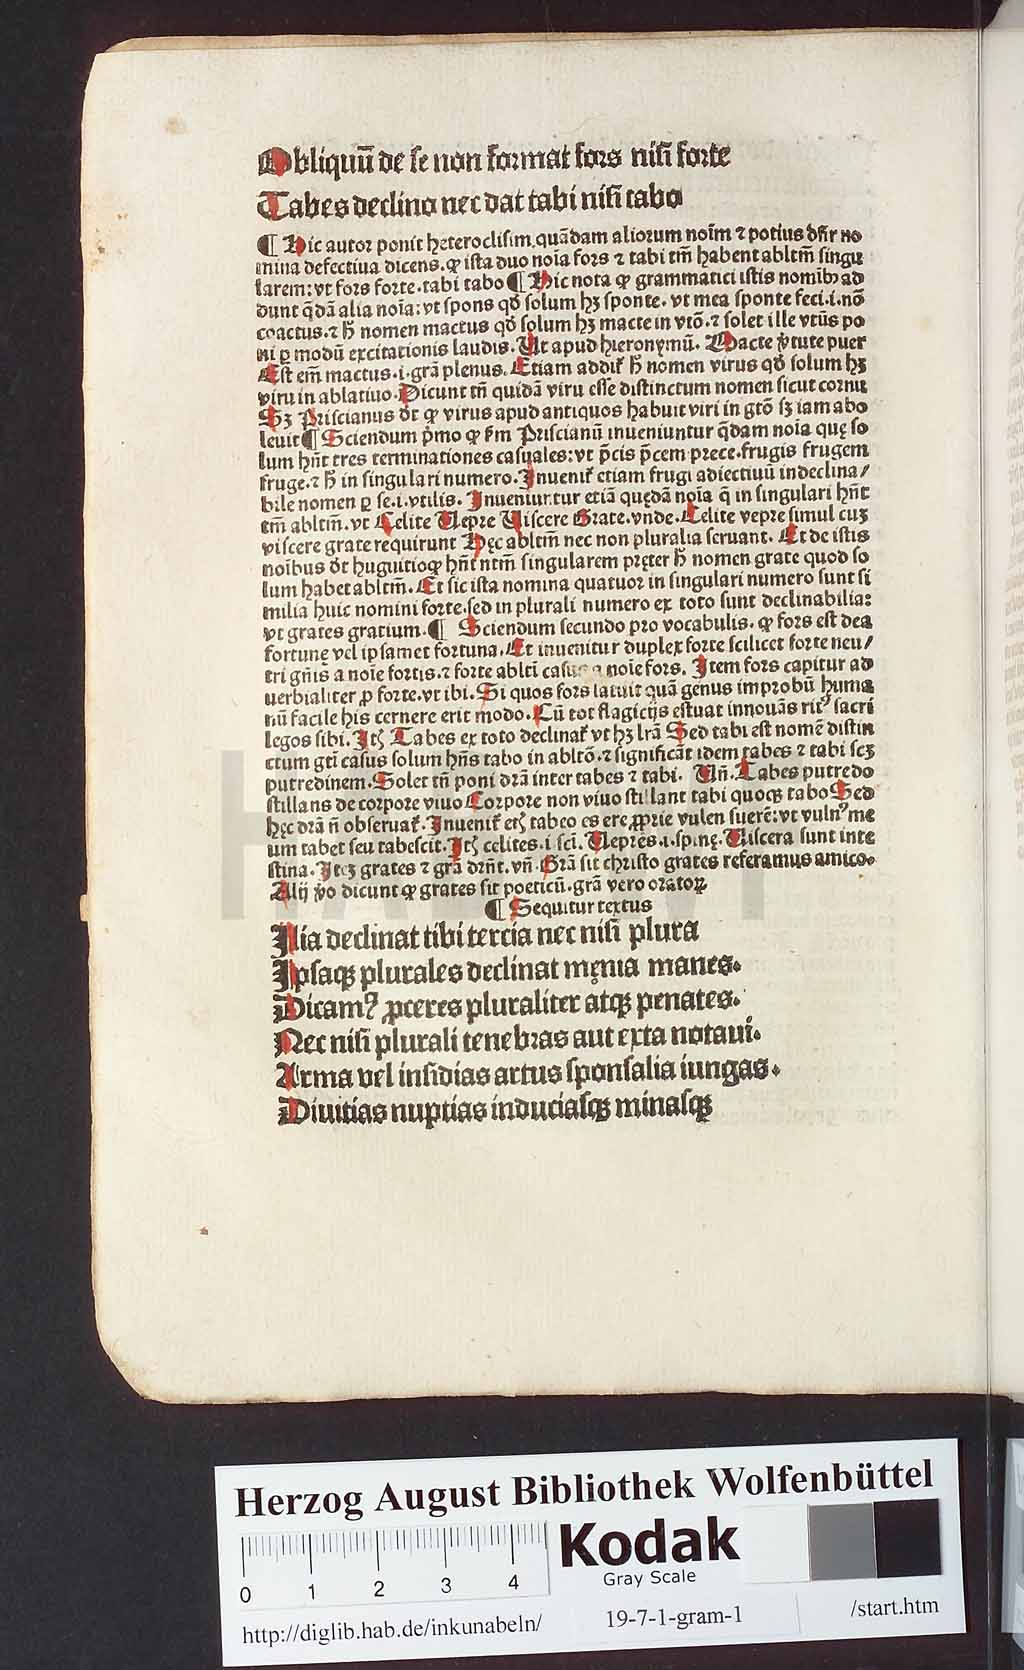 Obliquū de se non format fors nisi forte
Tabes declino nec dat tabi nisi tabo
¶ Hic autor ponit heteroclisim quādam aliorum noīm ⁊ potius dr̄ir no
mina defectiua dicens. ꝙ ista duo noīa fors ⁊ tabi tm̄ habent abltm̄ singu
larem: vt fors forte. tabi tabo ¶ Hic nota ꝙ grammatici istis nomīb ad
dunt q̄dā alia noīa: vt spons qd̄ solum hꝫ sponte. vt mea sponte feci. i. nō
coactus. ⁊ h̄ nomen mactus qd̄ solum hꝫ macte in vtō. ⁊ solet ille vtūs po
ni ꝑ modū excitationis laudis. Ut apud hieronymū. Macte v̓tute puer
Est em̄ mactus. i. grā plenus. Etiam addit᷑ h̄ nomen virus qd̄ solum hꝫ
viru in ablatiuo. Dicunt tn̄ quidā viru esse distinctum nomen sicut cornu
Sꝫ Priscianus dt̄ ꝙ virus apud antiquos habuit viri in gtō sꝫ iam abo
leuit ¶ Sciendum p̓mo ꝙ sm̄ Priscianū inueniuntur q̄dam noīa quę so
lum hn̄t tres terminationes casuales: vt p̄cis p̄cem prece. frugis frugem
fruge. ⁊ h̄ in singulari numero. Inuenit᷑ etiam frugi adiectiuū indeclina/
bile nomen ꝑ se. i. vtilis. Inueniuntur etiā quędā noīa q̄ in singulari hn̄t
tm̄ abltm̄. vt Celite Uepre Uiscere Grate. vnde. Celite vepre simul cuꝫ
viscere grate requirunt Hęc abltm̄ nec non pluralia seruant. Et de istis
noībus dt̄ huguitio ꝙ hn̄t ntm̄ singularem pręter h̄ nomen grate quod so
lum habet abltm̄. Et sic ista nomina quatuor in singulari numero sunt si
milia huic nomini forte. sed in plurali numero ex toto sunt declinabilia:
vt grates gratium. ¶ Sciendum secundo pro vocabulis. ꝙ fors est dea
fortunę vel ipsamet fortuna. Et inuenitur duplex forte scilicet forte neu/
tri gn̄is a noīe fortis. ⁊ forte abltī casus a noīe fors. Item fors capitur ad
uerbialiter ꝓ forte. vt ibi. Si quos fors latuit quā genus improbū huma
nū facile his cernere erit modo. Cū tot flagicijs estuat innouās rit᷒ sacri
legos sibi. Itꝫ Tabes ex toto declinat᷑ vt hꝫ lrā Sed tabi est nomē distin
ctum gtī casus solum hn̄s tabo in abltō. ⁊ significāt idem tabes ⁊ tabi scꝫ
putredinem. Solet tn̄ poni drā inter tabes ⁊ tabi. Un̄. Tabes putredo
stillans de corpore viuo Corpore non viuo stillant tabi quoqꝫ tabo Sed
hęc drā n̄ obseruat᷑. Inuenit᷑ etꝫ tabeo es ere ꝓprie vulen fuerē: vt vuln᷒ me
um tabet seu tabescit. Itꝫ celites. i sci. Uepres. i. spinę. Uiscera sunt inte
stina. Iteꝫ grates ⁊ grā drn̄t. vn̄. Grā sit christo grates referamus amico.
Alij v̓o dicunt ꝙ grates sit poeticū. grā vero orator
¶ Sequitur textus
Ilia declinat tibi tercia nec nisi plura
Ipsaqꝫ plurales declinat męnia manes.
Dicam᷒ ꝓceres pluraliter atqꝫ penates.
Nec nisi plurali tenebras aut exta notaui.
Arma vel insidias artus sponsalia iungas.
Diuitias nuptias induciasqꝫ minasqꝫ
HAB WF
Herzog August Bibliothek Wolfenbüttel
0 1 2 3 4
Kodak
Gray Scale
http://diglib.hab.de/inkunabeln/ 19-7-1-gram-1 /start.htm